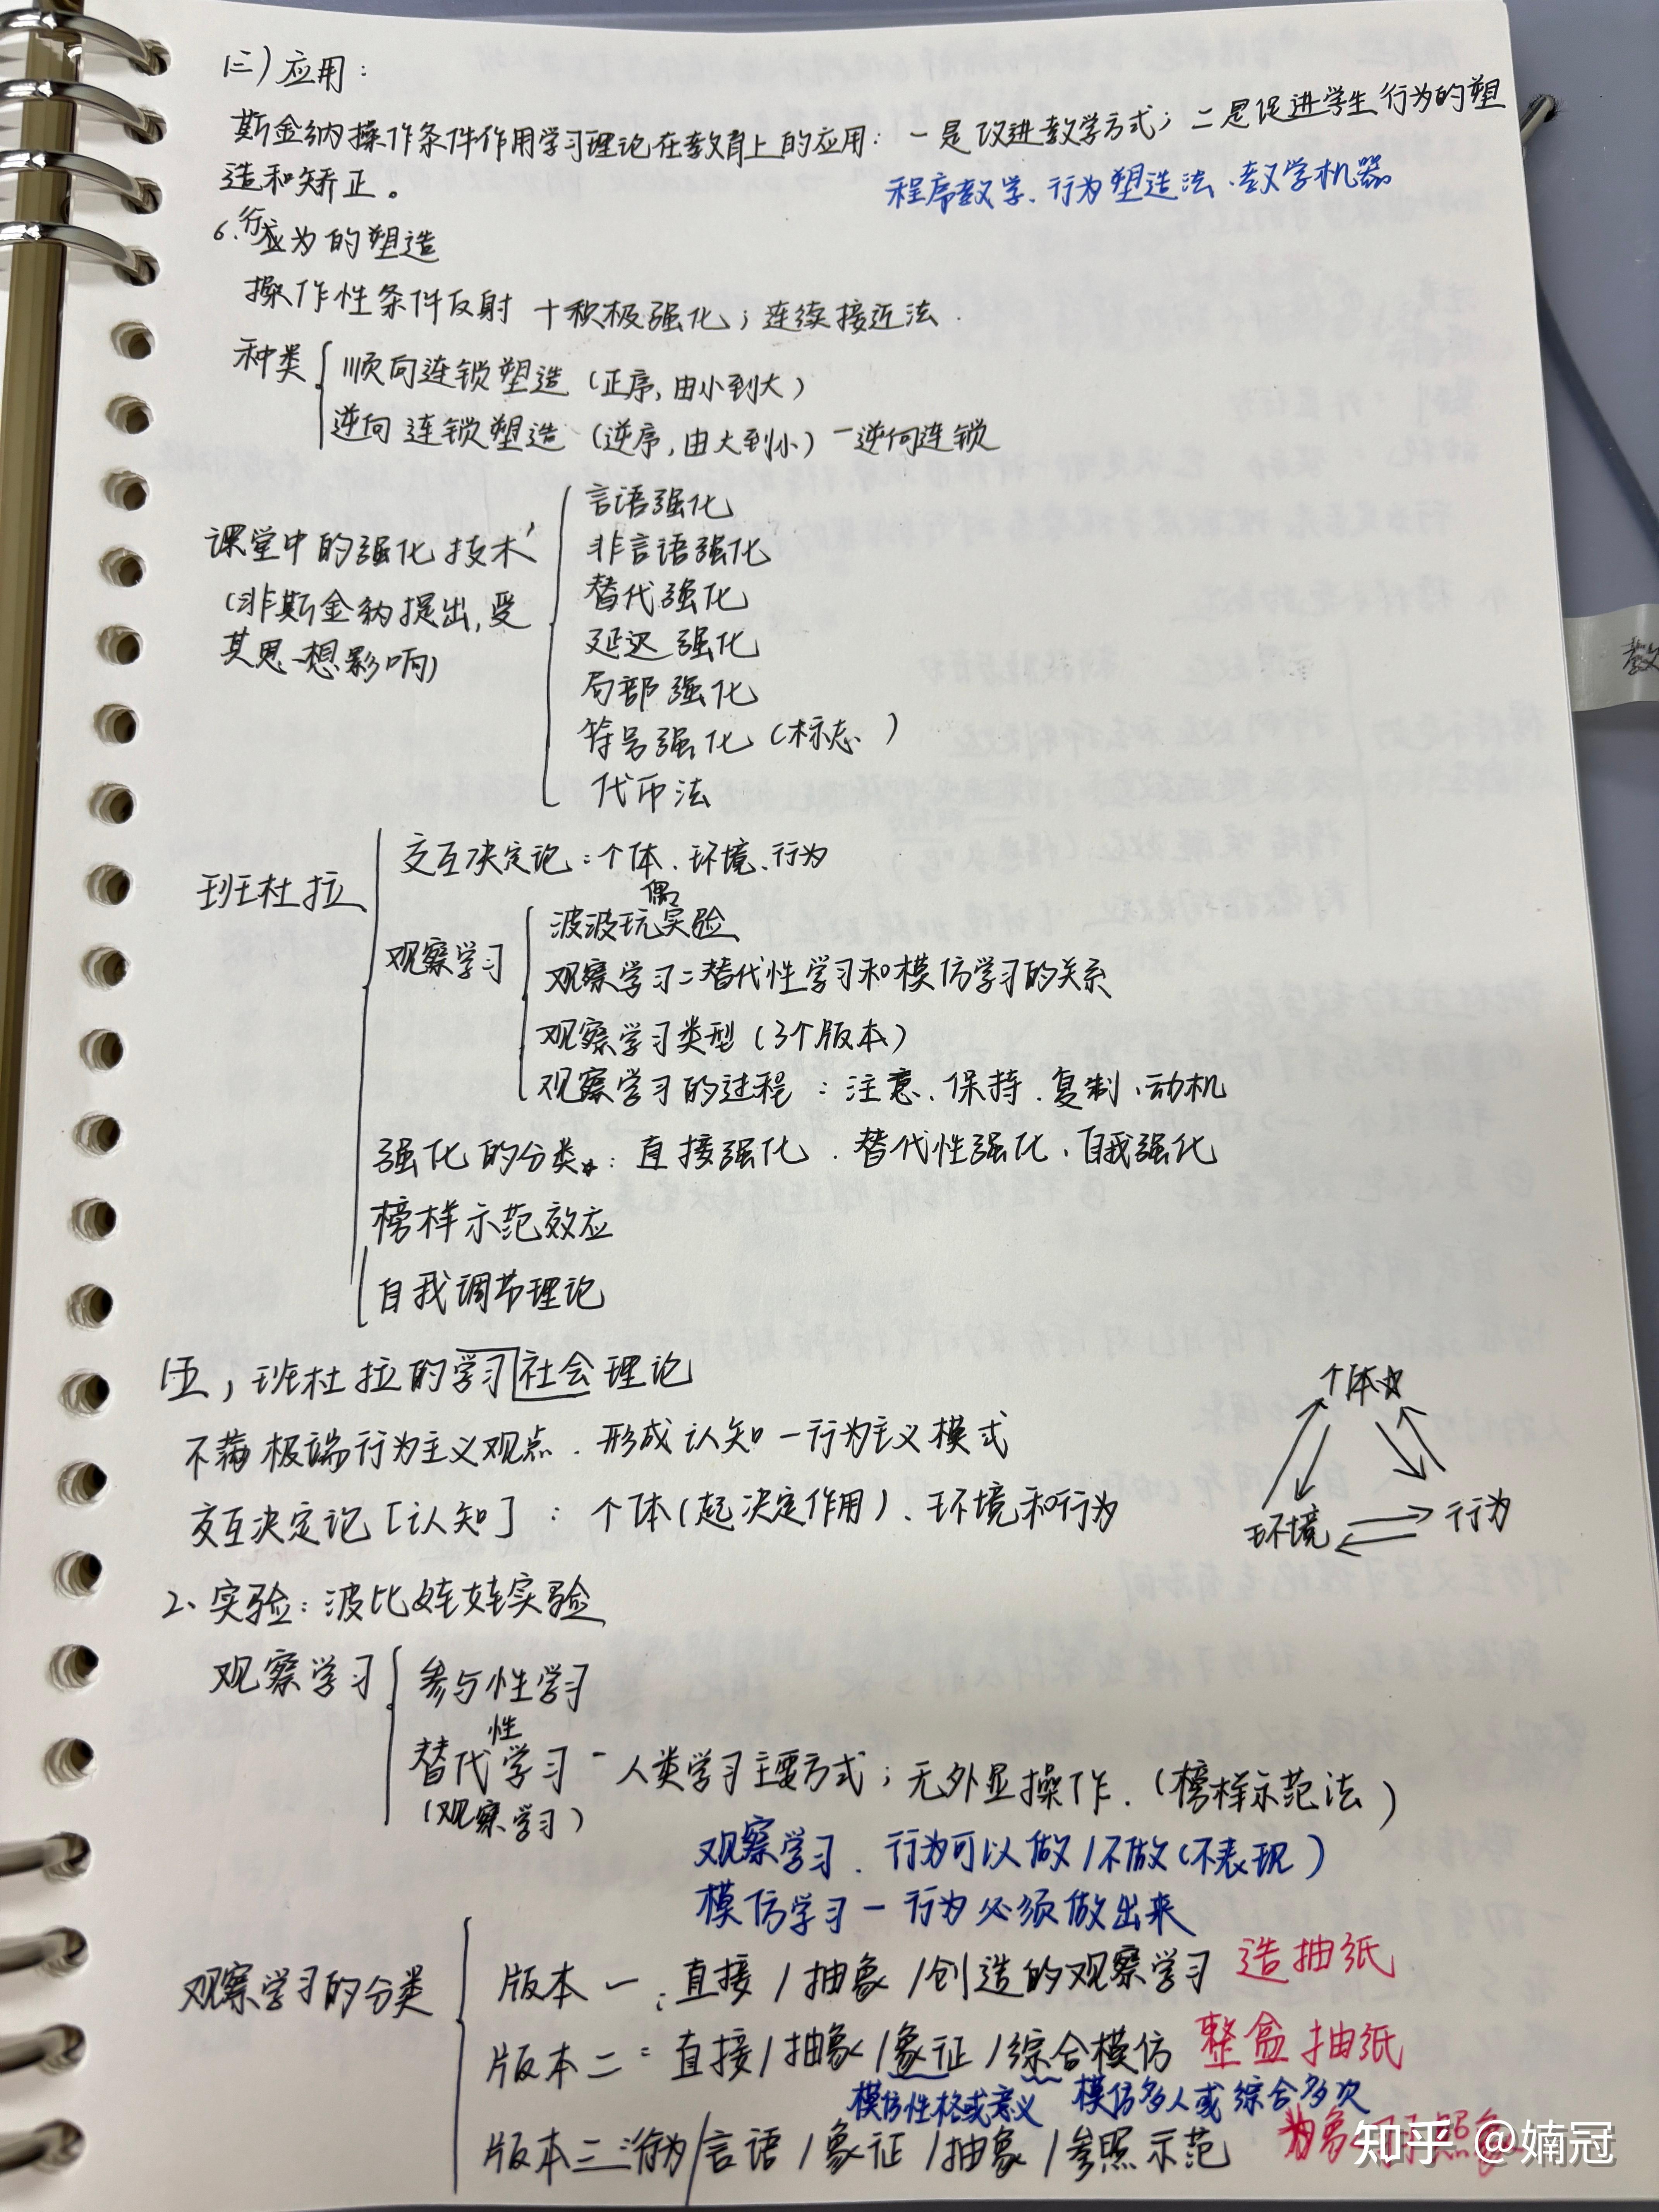 (三)应用:
斯金纳操作条件作用学习理论在教育上的应用:一是改进教学方式;二是促进学生行为的塑
造和矫正。
程序教学、行为塑造法、教学机器
6.行为的塑造
操作性条件反射 十积极强化;连续接近法.
种类
顺向连锁塑造(正序,由小到大)
逆向连锁塑造(逆序,由大到小)—逆向连锁
课堂中的强化技术
(非斯金纳提出,受
其思想影响)
言语强化
非言语强化
替代强化
延迟强化
局部强化
符号强化(标志)
代币法
班杜拉
交互决定论:个体、环境、行为
观察学习
波波玩偶实验
观察学习=替代性学习和模仿学习的关系
观察学习类型(3个版本)
观察学习的过程:注意、保持、复制、动机
强化的分类☆:直接强化、替代性强化、自我强化
榜样示范效应
自我调节理论
(五)班杜拉的学习社会理论
不满极端行为主义观点.形成认知—行为主义模式
交互决定论[认知]:个体(起决定作用)、环境和行为
个体☆
环境
行为
2、实验:波比娃娃实验
观察学习
参与性学习
替代性学习—人类学习主要方式;无外显操作.(榜样示范法)
(观察学习)
观察学习.行为可以做/不做(不表现)
模仿学习—行为必须做出来
观察学习的分类
版本一:直接/抽象/创造的观察学习 造抽纸
版本二:直接/抽象/象征/综合模仿 整盒抽纸
模仿性格或意义 模仿多人或综合多次
版本三:行为/言语/象征/抽象/参照示范
知乎 @婻冠
教